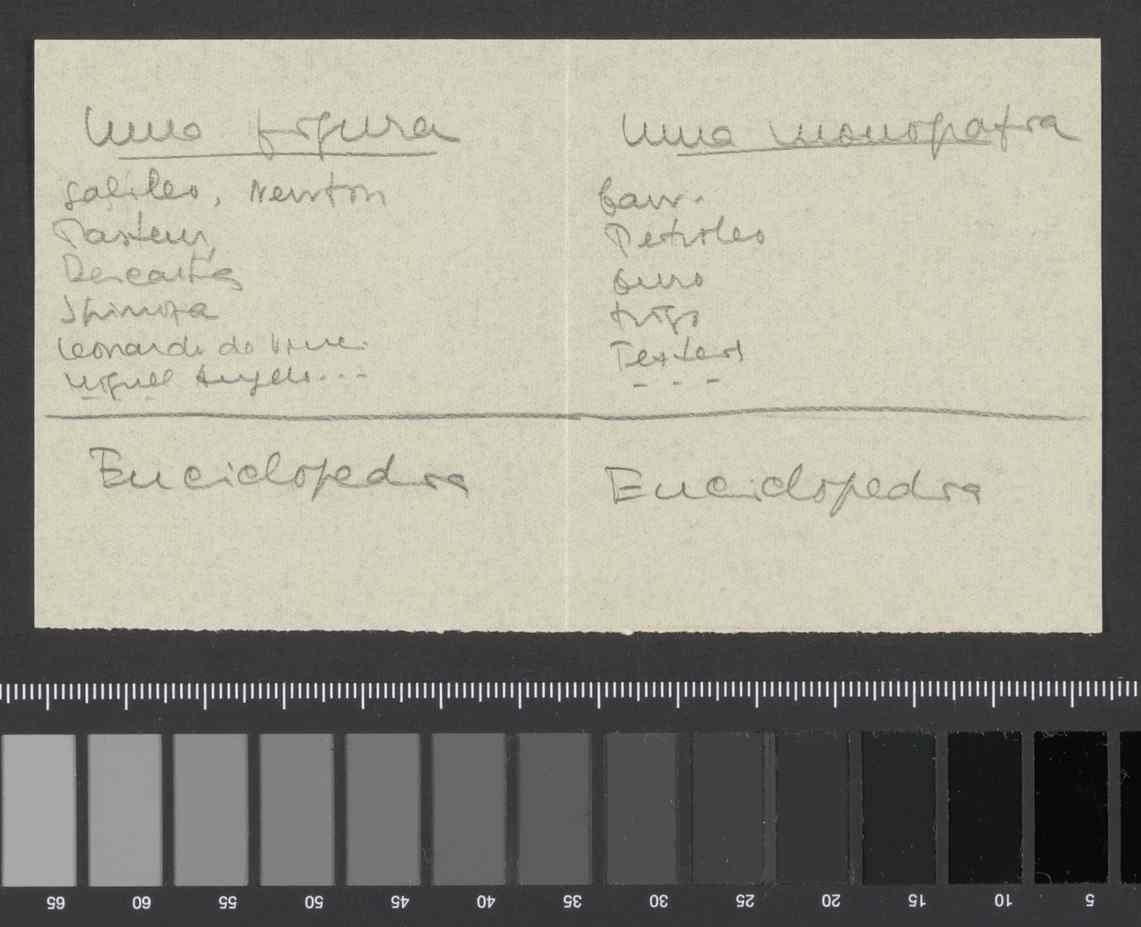 Uma figura
Galileo, Newton
Pasteur,
Descartes
Spinoza
Leonardo da Vinci
Miguel Angelo...
Enciclopedia
Uma monografia
Petroleo
Ouro
trigo
Texteis
- - -
Enciclopedia
65 60 55 50 45 40 35 30 25 20 15 10 5